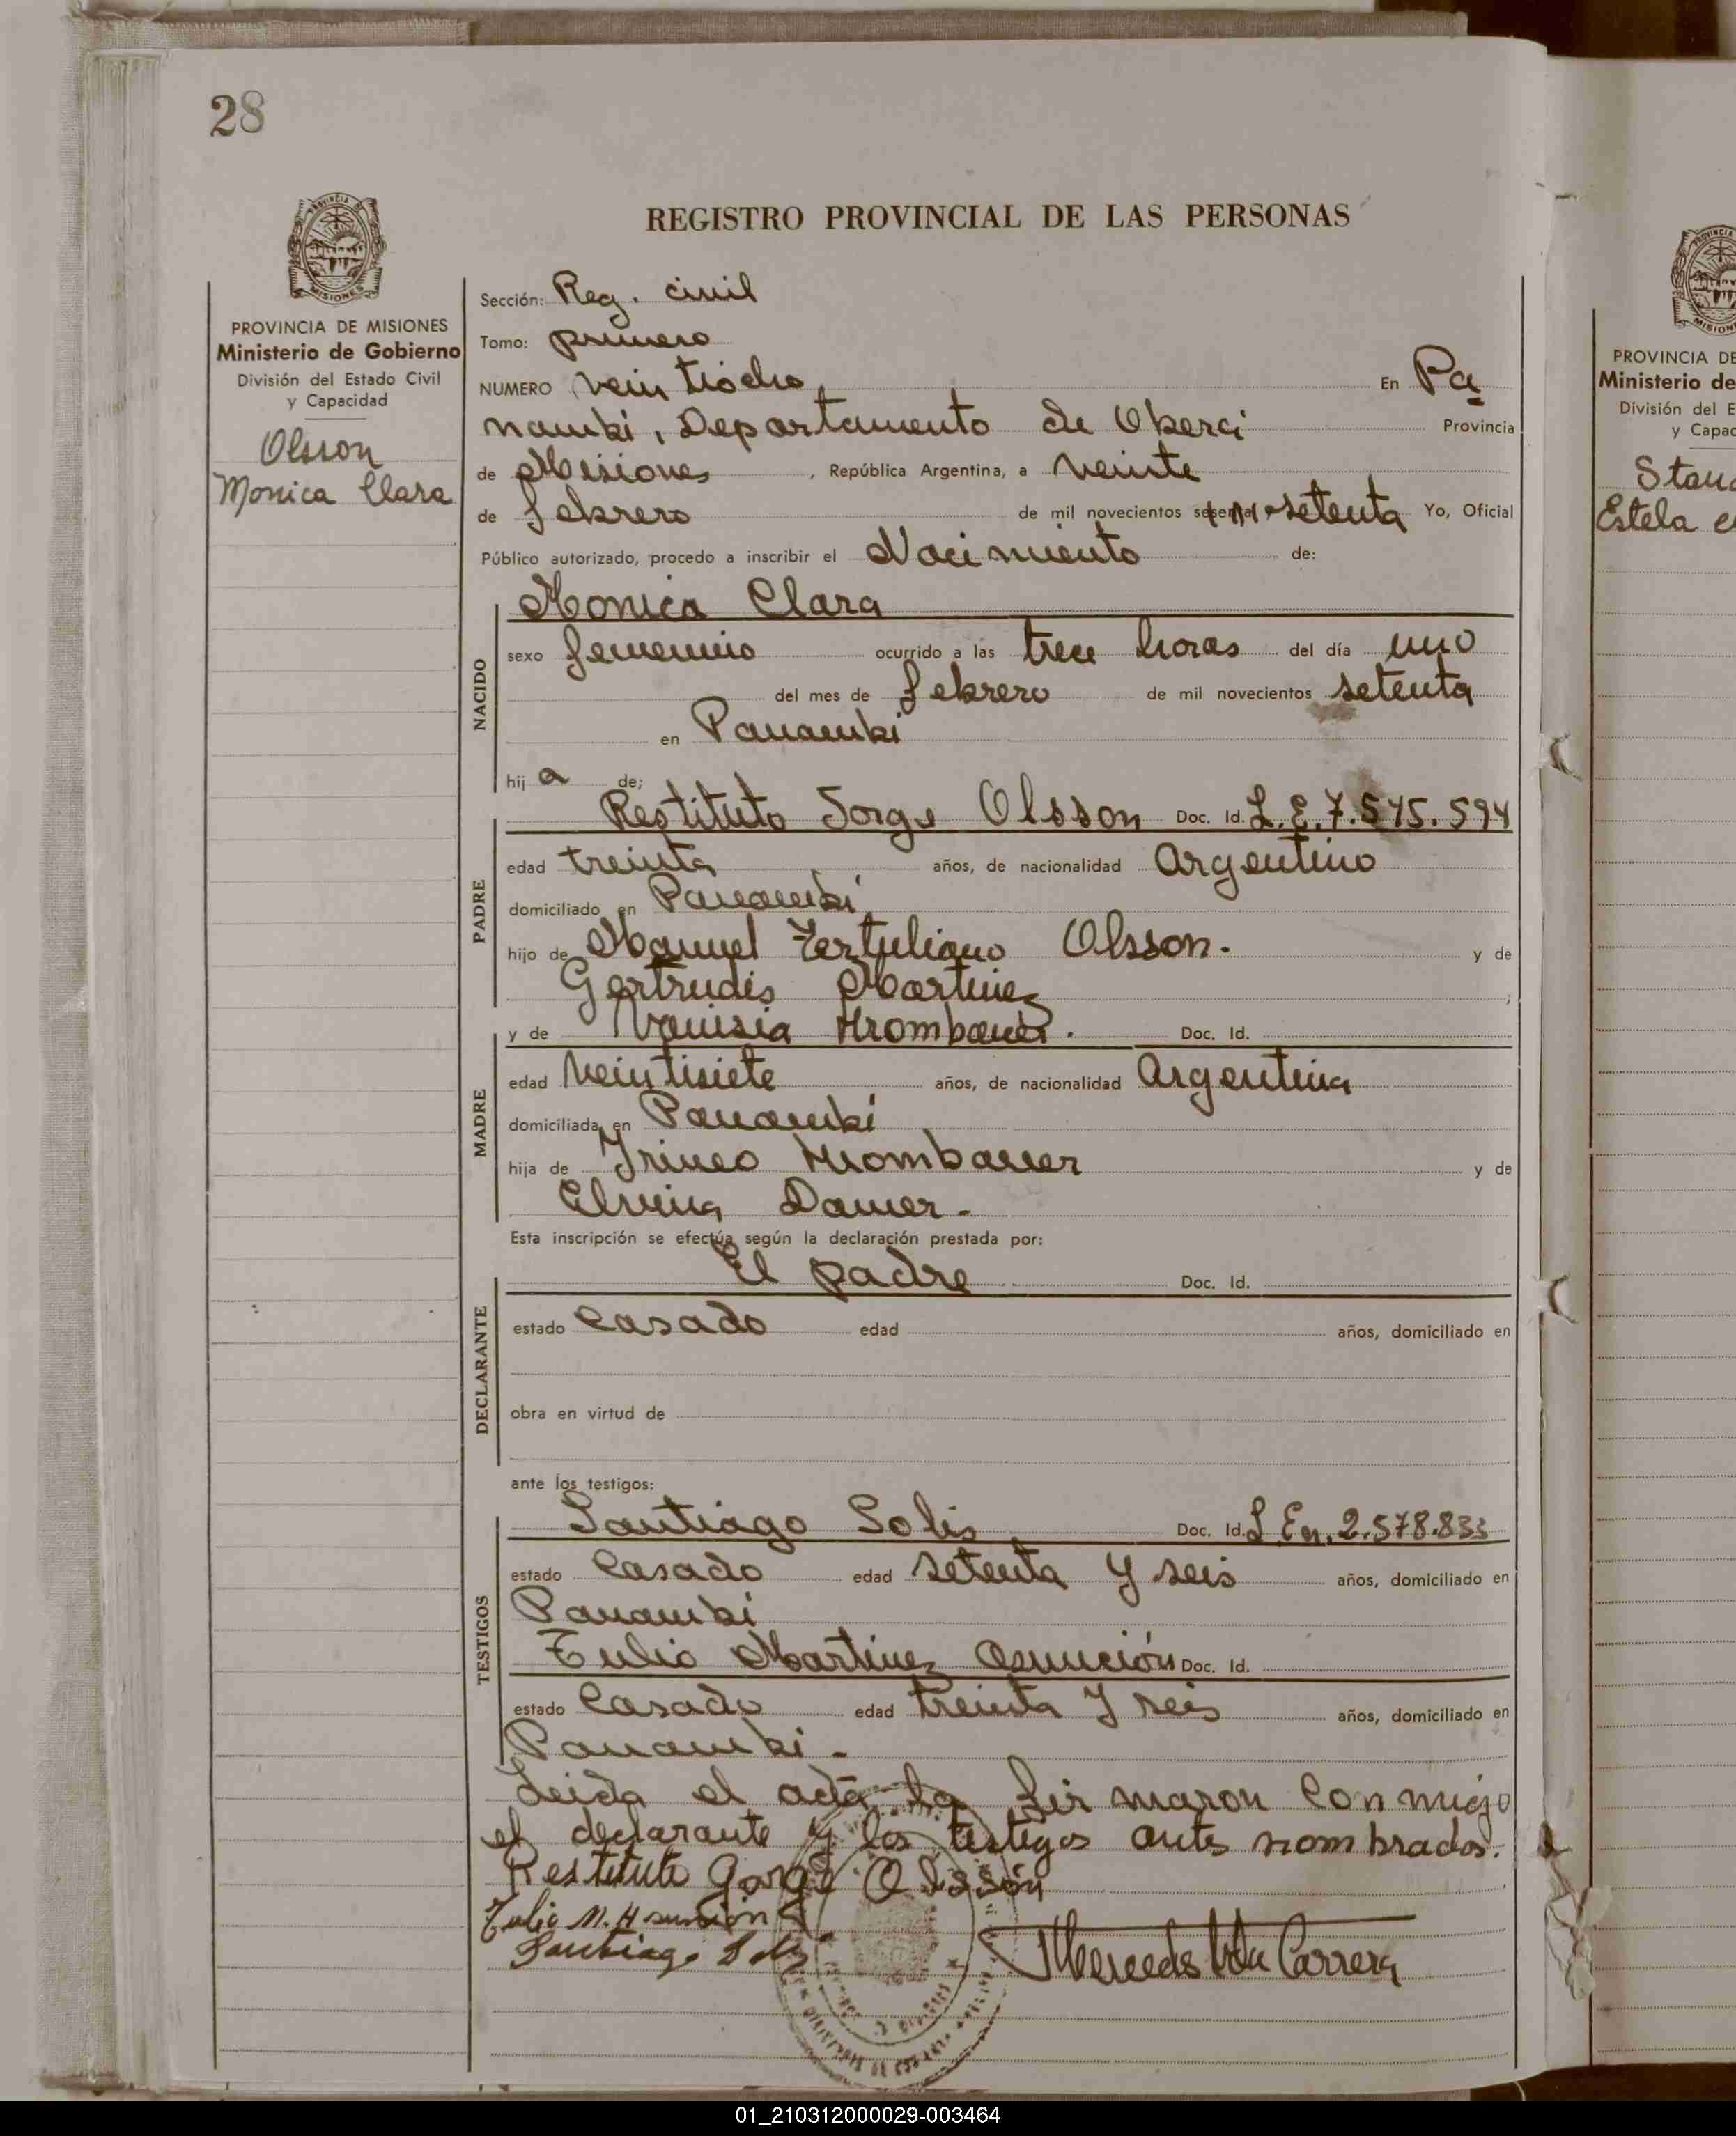 28
REGISTRO PROVINCIAL DE LAS PERSONAS
PROVINCIA DE MISIONES
Ministerio de Gobierno
División del Estado Civil
y Capacidad
Olsson
Monica Clara
Sección: Reg. civil
Tomo: primero
NUMERO veintiocho, En Pa
nambi, Departamento de Oberá Provincia
de Misiones, República Argentina, a veinte
de febrero de mil novecientos setenta Yo, Oficial
Público autorizado, procedo a inscribir el Nacimiento de:
NACIDO
Monica Clara
sexo femenino ocurrido a las trece horas del día uno
del mes de febrero de mil novecientos setenta
en Panambi
hij a de:
PADRE
Restituto Jorge Olsson Doc. Id. L.E. 7.575.594
edad treinta años, de nacionalidad Argentino
domiciliado en Panambi
hijo de Manuel Tertuliano Olsson. y de
Gertrudis Martinez ;
MADRE
y de Doc. Id.
edad veintisiete años, de nacionalidad Argentina
domiciliada en Panambi
hija de Irineo y de
Elvina
Esta inscripción se efectúa según la declaración prestada por:
DECLARANTE
El padre Doc. Id.
estado casado edad años, domiciliado en
obra en virtud de
ante los testigos:
TESTIGOS
Santiago Solis Doc. Id. L.En. 2.578.833
estado casado edad setenta y seis años, domiciliado en
Panambi
Tulio Martinez Asunción Doc. Id.
estado casado edad treinta y seis años, domiciliado en
Panambi.-
Leida el acta la firmaron conmigo
el declarante y los testigos antes nombrados.
Restituto Gorge Olssón
Tulio M. Asunsion
Santiago Solis
Carrera
PROVINCIA DE
Ministerio de
División del E
y Capac
Estela
01_210312000029-003464